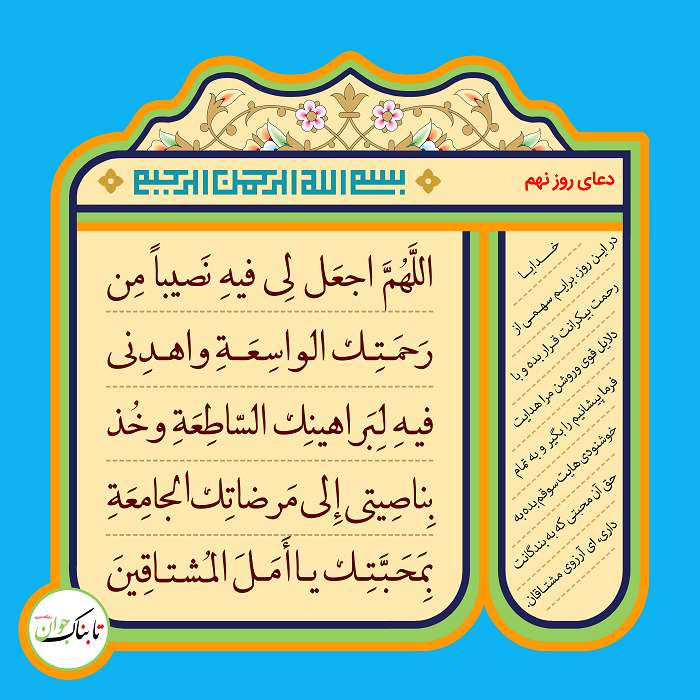 بسم الله الرحمن الرحیم
دعای روز نهم
اللَّهُمَّ اجعَل لِی فیهِ نَصیباً مِن
رَحمَتِـك الواسِعَـةِ واهـدِنی
فیـهِ لِبَراهینِك السّاطِعَةِ وخُذ
بِناصِیتی إِلی مَرضاتِكَ الجامِعَةِ
بِمَحَبَّتِـك یـا أَمَـلَ المُشتـاقِینَ
خـــدایـا
در این روز، برایم سهمی از
رحمت بیکرانت قرار بده و با
دلایل قوی و روشن مرا هدایت
فرما پیشانیم را بگیر و به تمام
خوشنودی هایت سوقم بده به
حق آن محبتی که به بندگانت
داری، ای آرزوی مشتاقان.
تابناک جوان